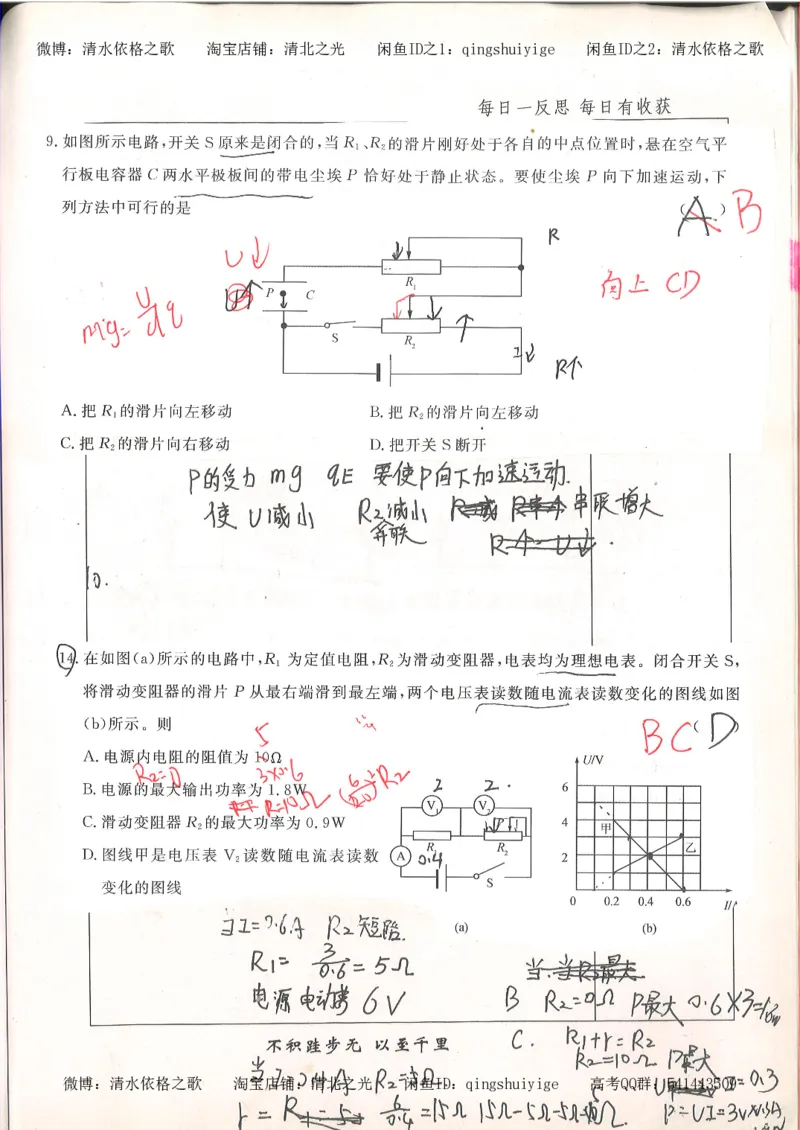 微博：清水依格之歌 淘宝店铺：清北之光 闲鱼ID之1：qingshuiyige 闲鱼ID之2：清水依格之歌
每日一反思 每日有收获
9. 如图所示电路,开关 S 原来是闭合的,当 R₁、R₂的滑片刚好处于各自的中点位置时,悬在空气平
行板电容器 C 两水平极板间的带电尘埃 P 恰好处于静止状态。要使尘埃 P 向下加速运动,下
列方法中可行的是 ( A ) B
R
U↓
向上 CD
R₁
P C
mg= U/d q
S
R₂
I↓
R↑
A. 把 R₁的滑片向左移动 B. 把 R₂的滑片向左移动
C. 把 R₂的滑片向右移动 D. 把开关 S 断开
P的受力 mg qE 要使P向下加速运动.
使 U减小 R₂减小 串联增大
并联
10.
14. 在如图(a)所示的电路中,R₁ 为定值电阻,R₂为滑动变阻器,电表均为理想电表。闭合开关 S,
将滑动变阻器的滑片 P 从最右端滑到最左端,两个电压表读数随电流表读数变化的图线如图
(b)所示。则 ( D )
BC
5
A. 电源内电阻的阻值为 10Ω
R₂=0 3×0.6
B. 电源的最大输出功率为 1.8W
R=10Ω
C. 滑动变阻器 R₂的最大功率为 0.9W
D. 图线甲是电压表 V₂读数随电流表读数
变化的图线
2 2
V₁ V₂
P
R₁ R₂
A 0.4
S
(a)
U/V
6
4
2
甲
乙
0 0.2 0.4 0.6 I/
(b)
当I=0.6A R₂短路.
R₁= 3/0.6 = 5Ω
电源电动势 6V
B R₂=0Ω P最大 0.6×3=1.8w
C. R₁+r=R₂
R₂=10Ω P最大
不积跬步无 以至千里
微博：清水依格之歌 淘宝店铺：清北之光 闲鱼ID：qingshuiyige 高考QQ群：541443500
6/0.4 =15Ω 15Ω-5Ω-5Ω
P=UI=3V×0.3A